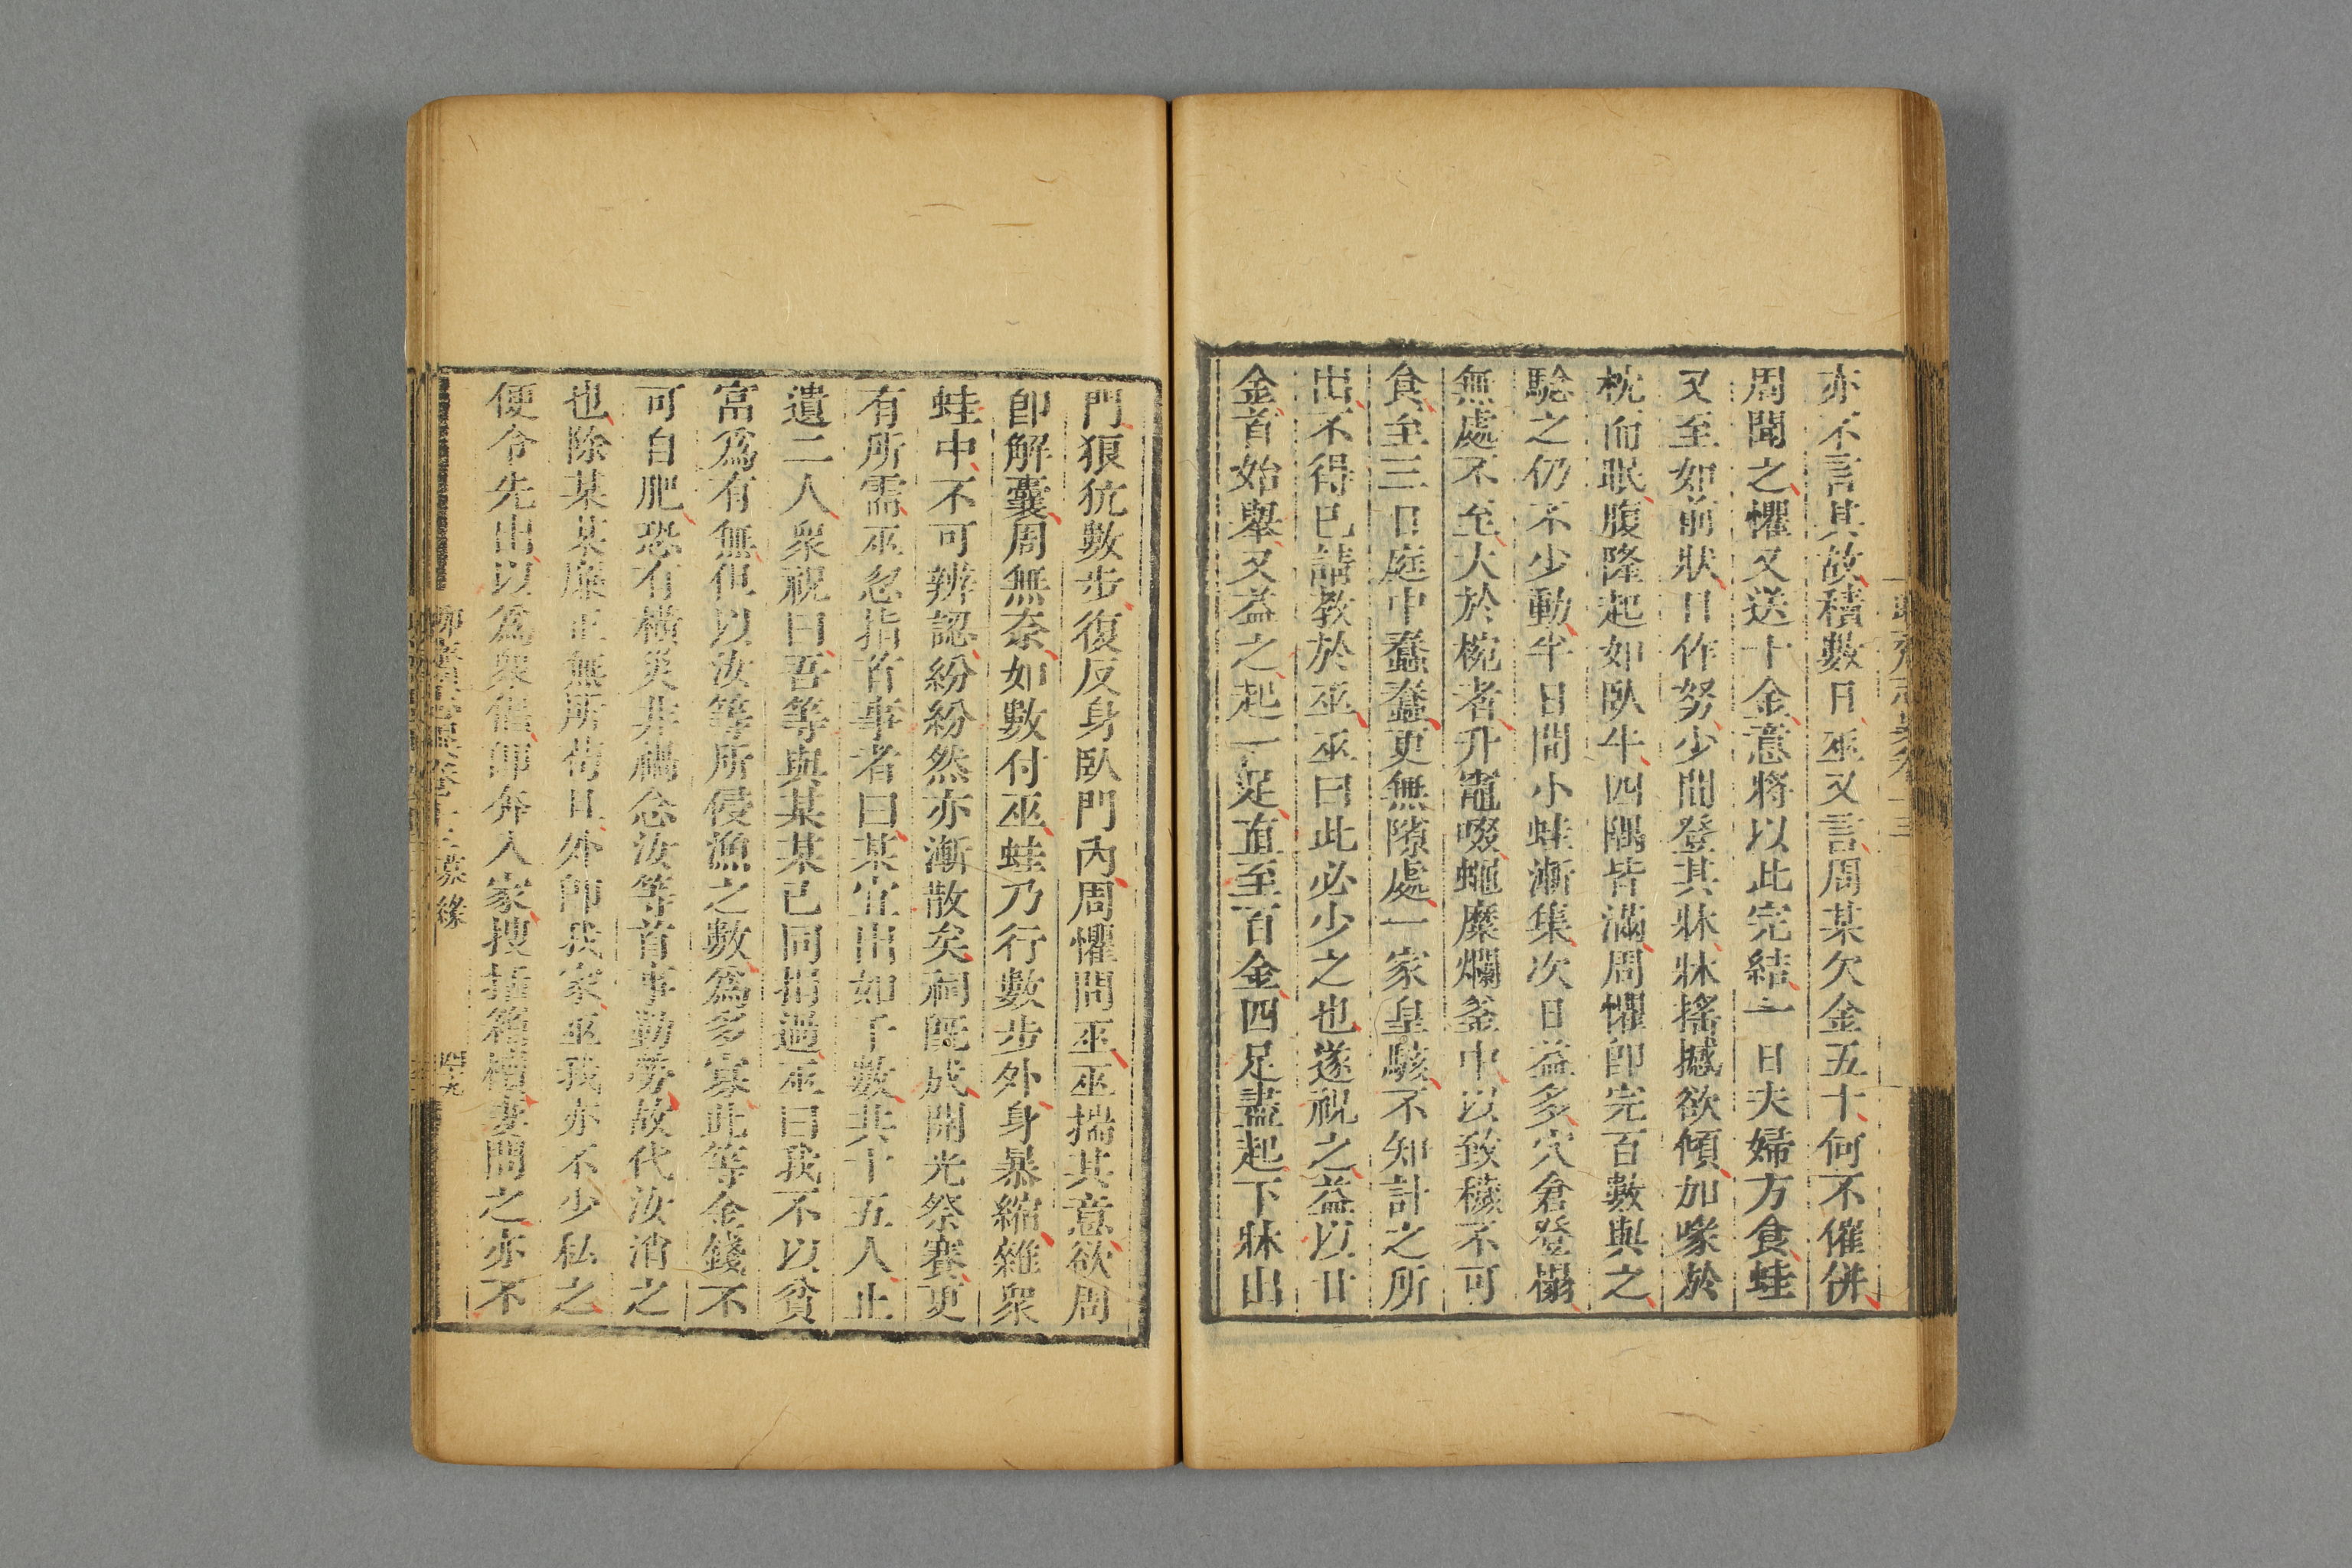 亦不言其故積數日巫又言周某欠金五十何不催併
周聞之懼又送十金意將以此完結一日夫婦方食蛙
又至如前狀目作努少間登其牀牀搖撼欲傾加喙於
枕而眠腹隆起如臥牛四隅皆滿周懼卽完百數與之
驗之仍不少動半日間小蛙漸集次日益多穴倉登榻
無處不至大於椀者升竈啜蠅糜爛釜中以致穢不可
食至三日庭中蠢蠢更無隙處一家皇駭不知計之所
出不得已請教於巫巫曰此必少之也遂祝之益以廿
金首始舉又益之起一足直至百金四足盡起下牀出
門狼犺數步復反身臥門內周懼問巫巫揣其意欲周
卽解囊周無奈如數付巫蛙乃行數步外身暴縮雜衆
蛙中不可辨認紛紛然亦漸散矣祠旣成開光祭賽更
有所需巫忽指首事者曰某宜出如干數共十五人止
遺二人衆祝曰吾等與某某已同捐過巫曰我不以貧
富爲有無但以汝等所侵漁之數爲多寡此等金錢不
可自肥恐有橫災非禍念汝等首事勤勞故代汝消之
也除某某廉正無所苟且外卽我家巫我亦不少私之
便令先出以爲衆倡卽奔入家搜括箱櫝妻問之亦不